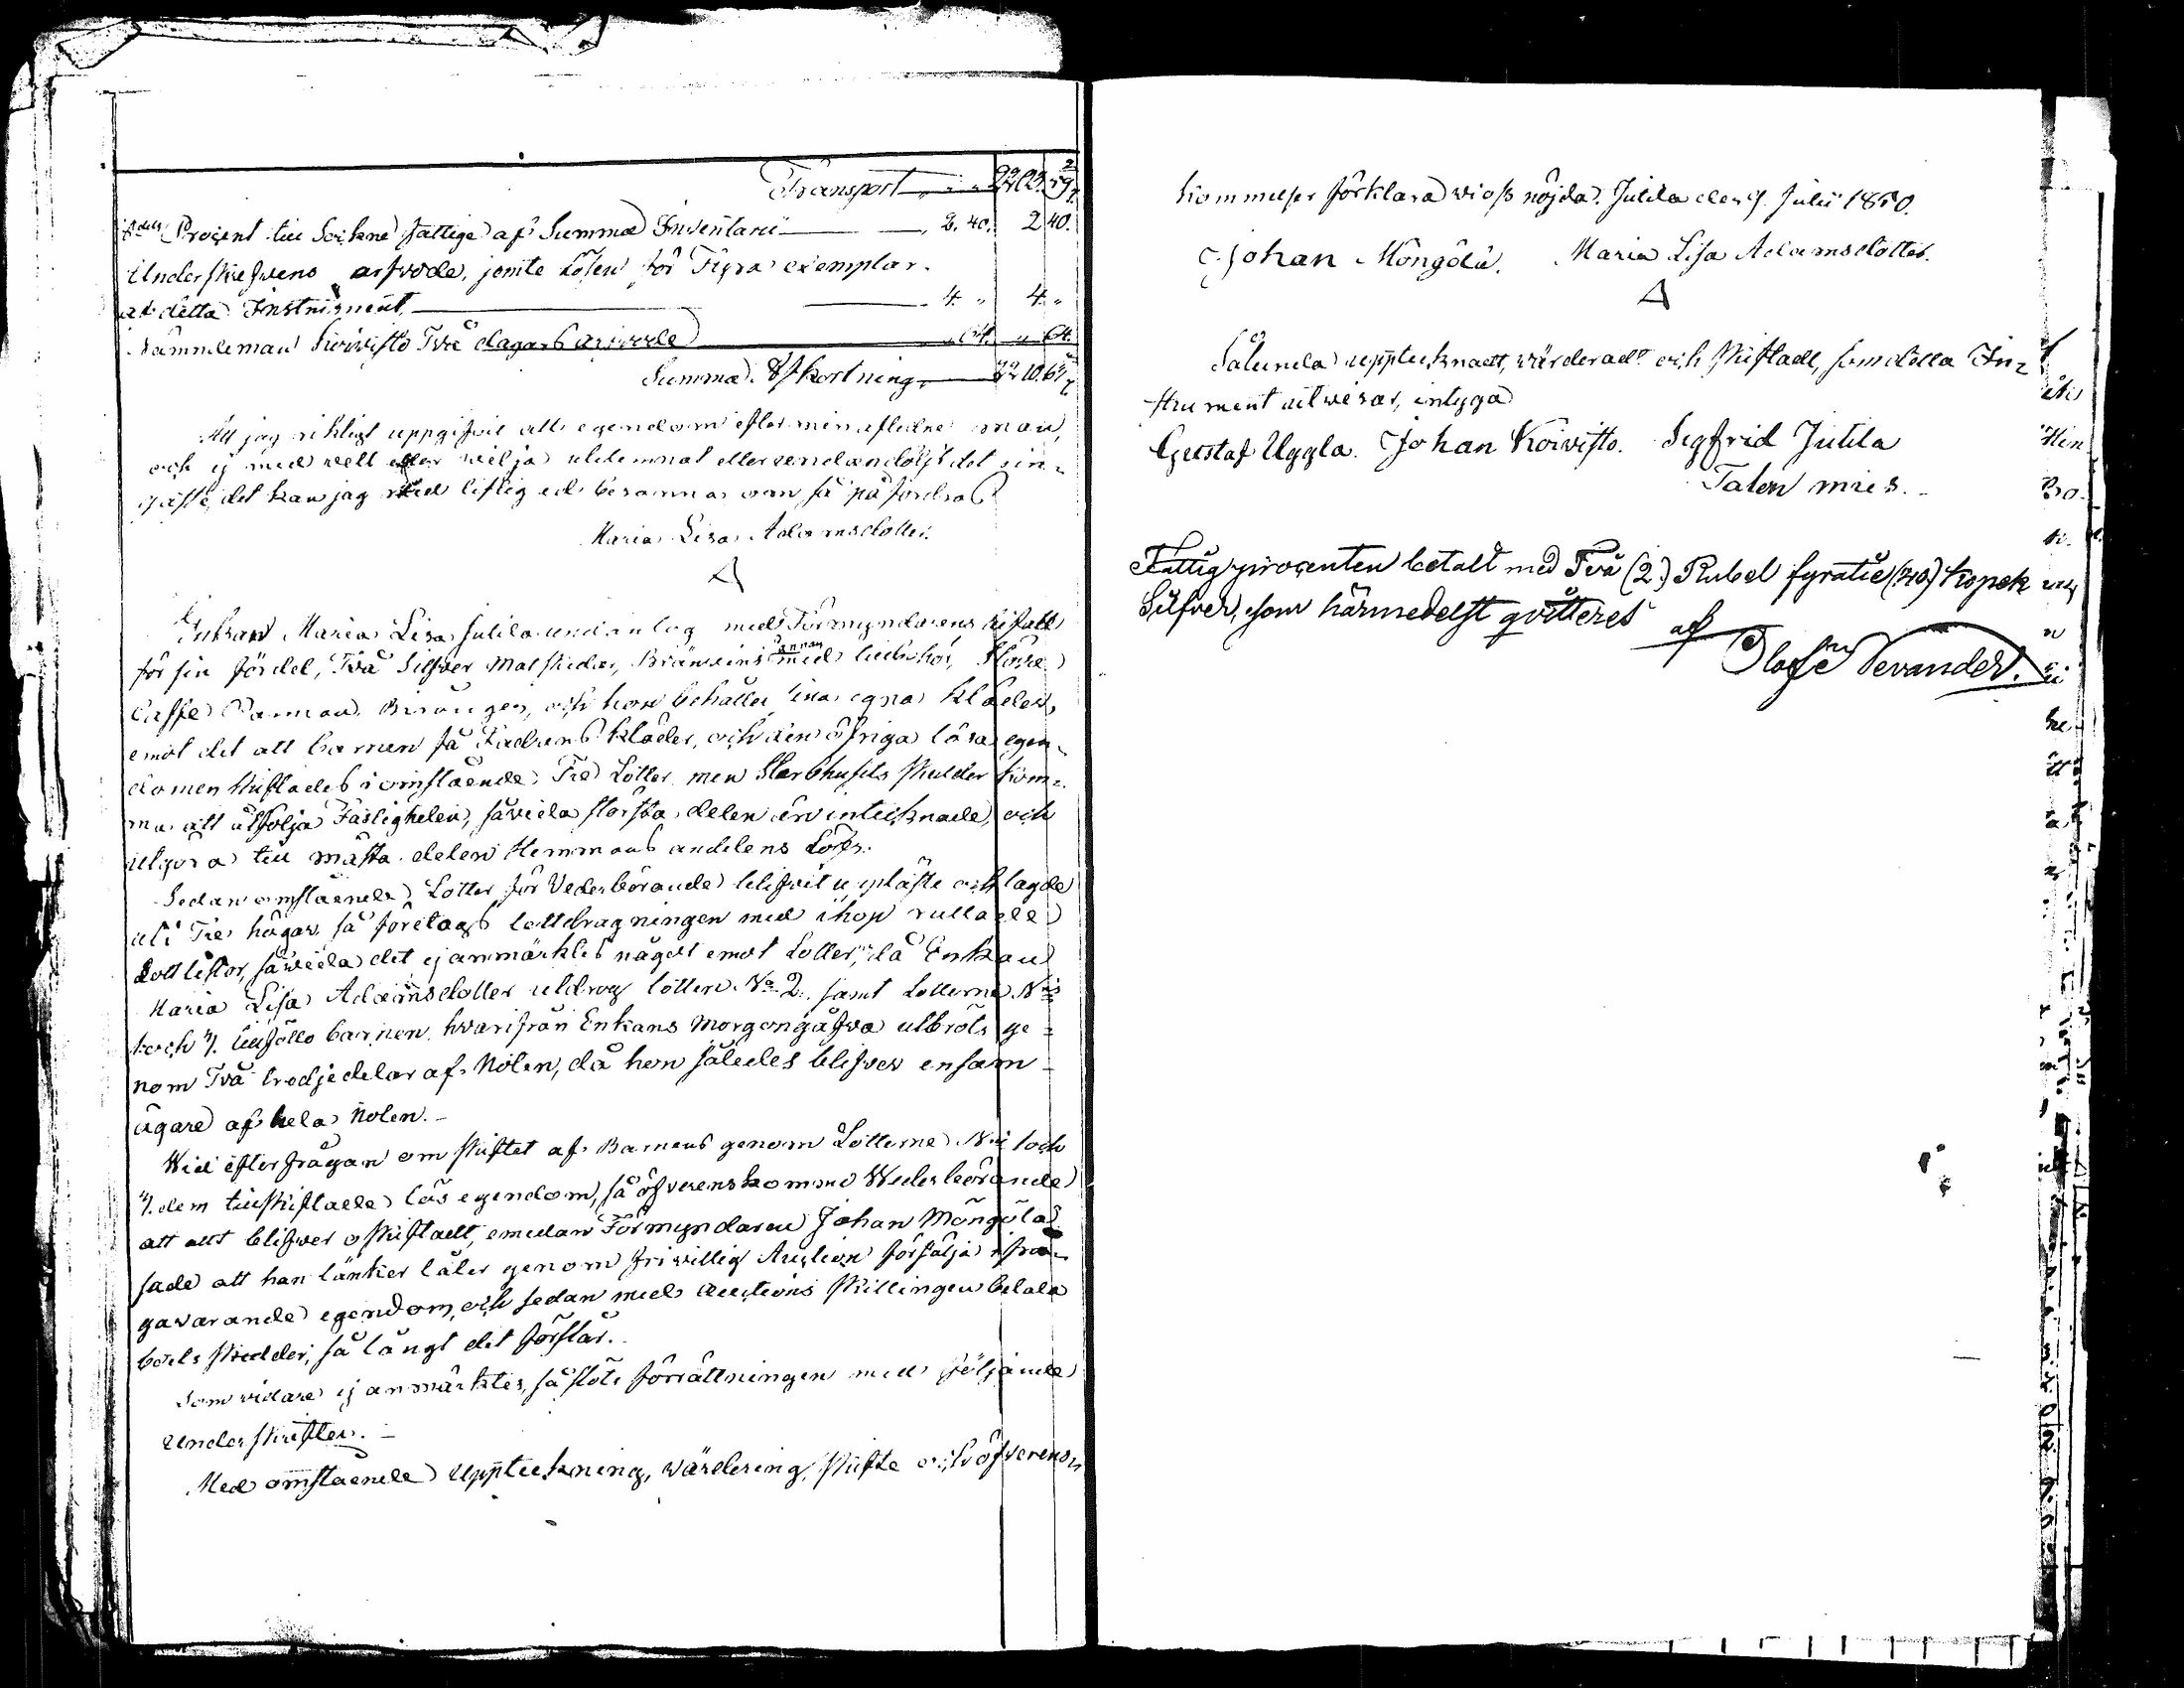 Transport
Procent till Sockne fattige af Summa Inventarii 2. 40. 2 40.
Underskrefwens arfvode, jemte Lösen för Fyra exemplar
af detta Instrument, 4. " 4. "
Nämndeman Koivisto Två dagars arivode " 64. " 64.
Summa Afkortning
Att jag riktigt uppgifvit all egendom efter min aflidne man,
och ej med vett eller wilja utelemnat eller undandöljt det rin-
gaste, det kan jag med liflig ed besanna om så påfordras
Maria Lisa Adamsdotter.
Enkan Maria Lisa Jutila undantog med Förmyndarens bifall
för sin fördel, Två Silfver Matskedar, Bränvins pannan med tillbehör, Stora
Caffe Pannan, och hon behåller sina egna kläder,
emot det att barnen få Fadrens kläder, och den öfriga lösa egen-
domen skiftades i omstående Tre Lotter men Sterbhusets skulder kom-
ma att åtfölja Fastigheten, såvida största delen är intecknade, och
utgöra till mästa delen Hemmans andelens Lösen.
Sedan omstående Lotter för Vederbörande blifvit uppläste och lagde
uti Tre högar så företogs lottdragningen med ihop rullade
Lott listor, såvida det ej anmärktes något emot Lotter, då Enkan
Maria Lisa Adamsdotter utdrog lotten No 2. samt Lotterne N:is
1 och 3. tillföllo barnen, hvarifrån Enkans Morgongåfva utbröts ge-
nom Två tredjedelar af Nolen, då hon således blifver ensam
ägare af hela Nolen.
Wid efterfrågan om skiftet af Barnens genom Lotterne N:is 1 och
3. dem tillskiftade lös egendom, så öfverenskommo Wederbörande
att allt blifver oskiftadt, emedan Förmyndaren Johan Mongola
sade att han tänker låter genom friwillig Auction försälja ifrå-
gavarande egendom, och sedan med auctions skillingen betala
boets skulder, så långt det förslår.
Som vidare ej anmärktes, så slöts förrättningen med följande
Underskrifter.
Med omstående Uppteckning, wärdering, skifte och öfverens-
kommelser förklara wi oss nöjda. Jutila den 9 Julii 1850.
Johan Mongola. Maria Lisa Adamsdotter.
Sålunda upptecknadt, wärderadt och skiftadt, som detta In-
strument utwisar, intyga
Gustaf Uggla. Johan Koivisto. Sigfrid Jutila
Talon mies.
Fattigprocenten betalt med Två (2) Rubel fyratio (40) kopek
Silfver, som härmedelst qvitteres
af
Olof Nevander.